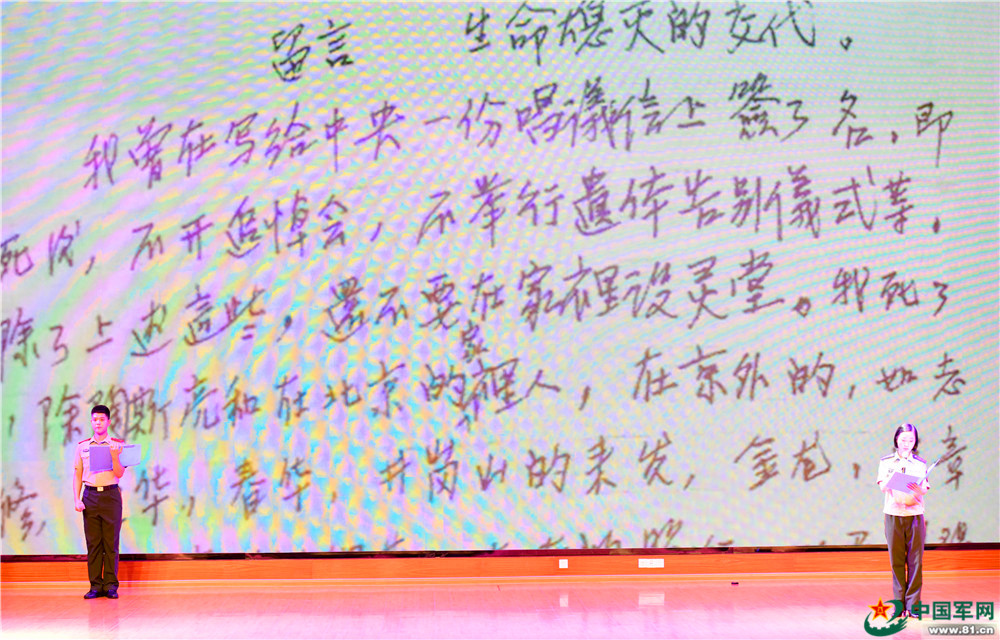 留言 生命熄灭的交代。
我曾在写给中央一份倡议信上簽了名，即
死後，不开追悼会，不举行遺体告别儀式等。
除了上述這些，還不要在家裡设灵堂。我死了
，除陶斯亮和在北京的家裡人，在京外的，如志
修，华，春华，井岗山的来发，金龙，章
中国军网
www.81.cn